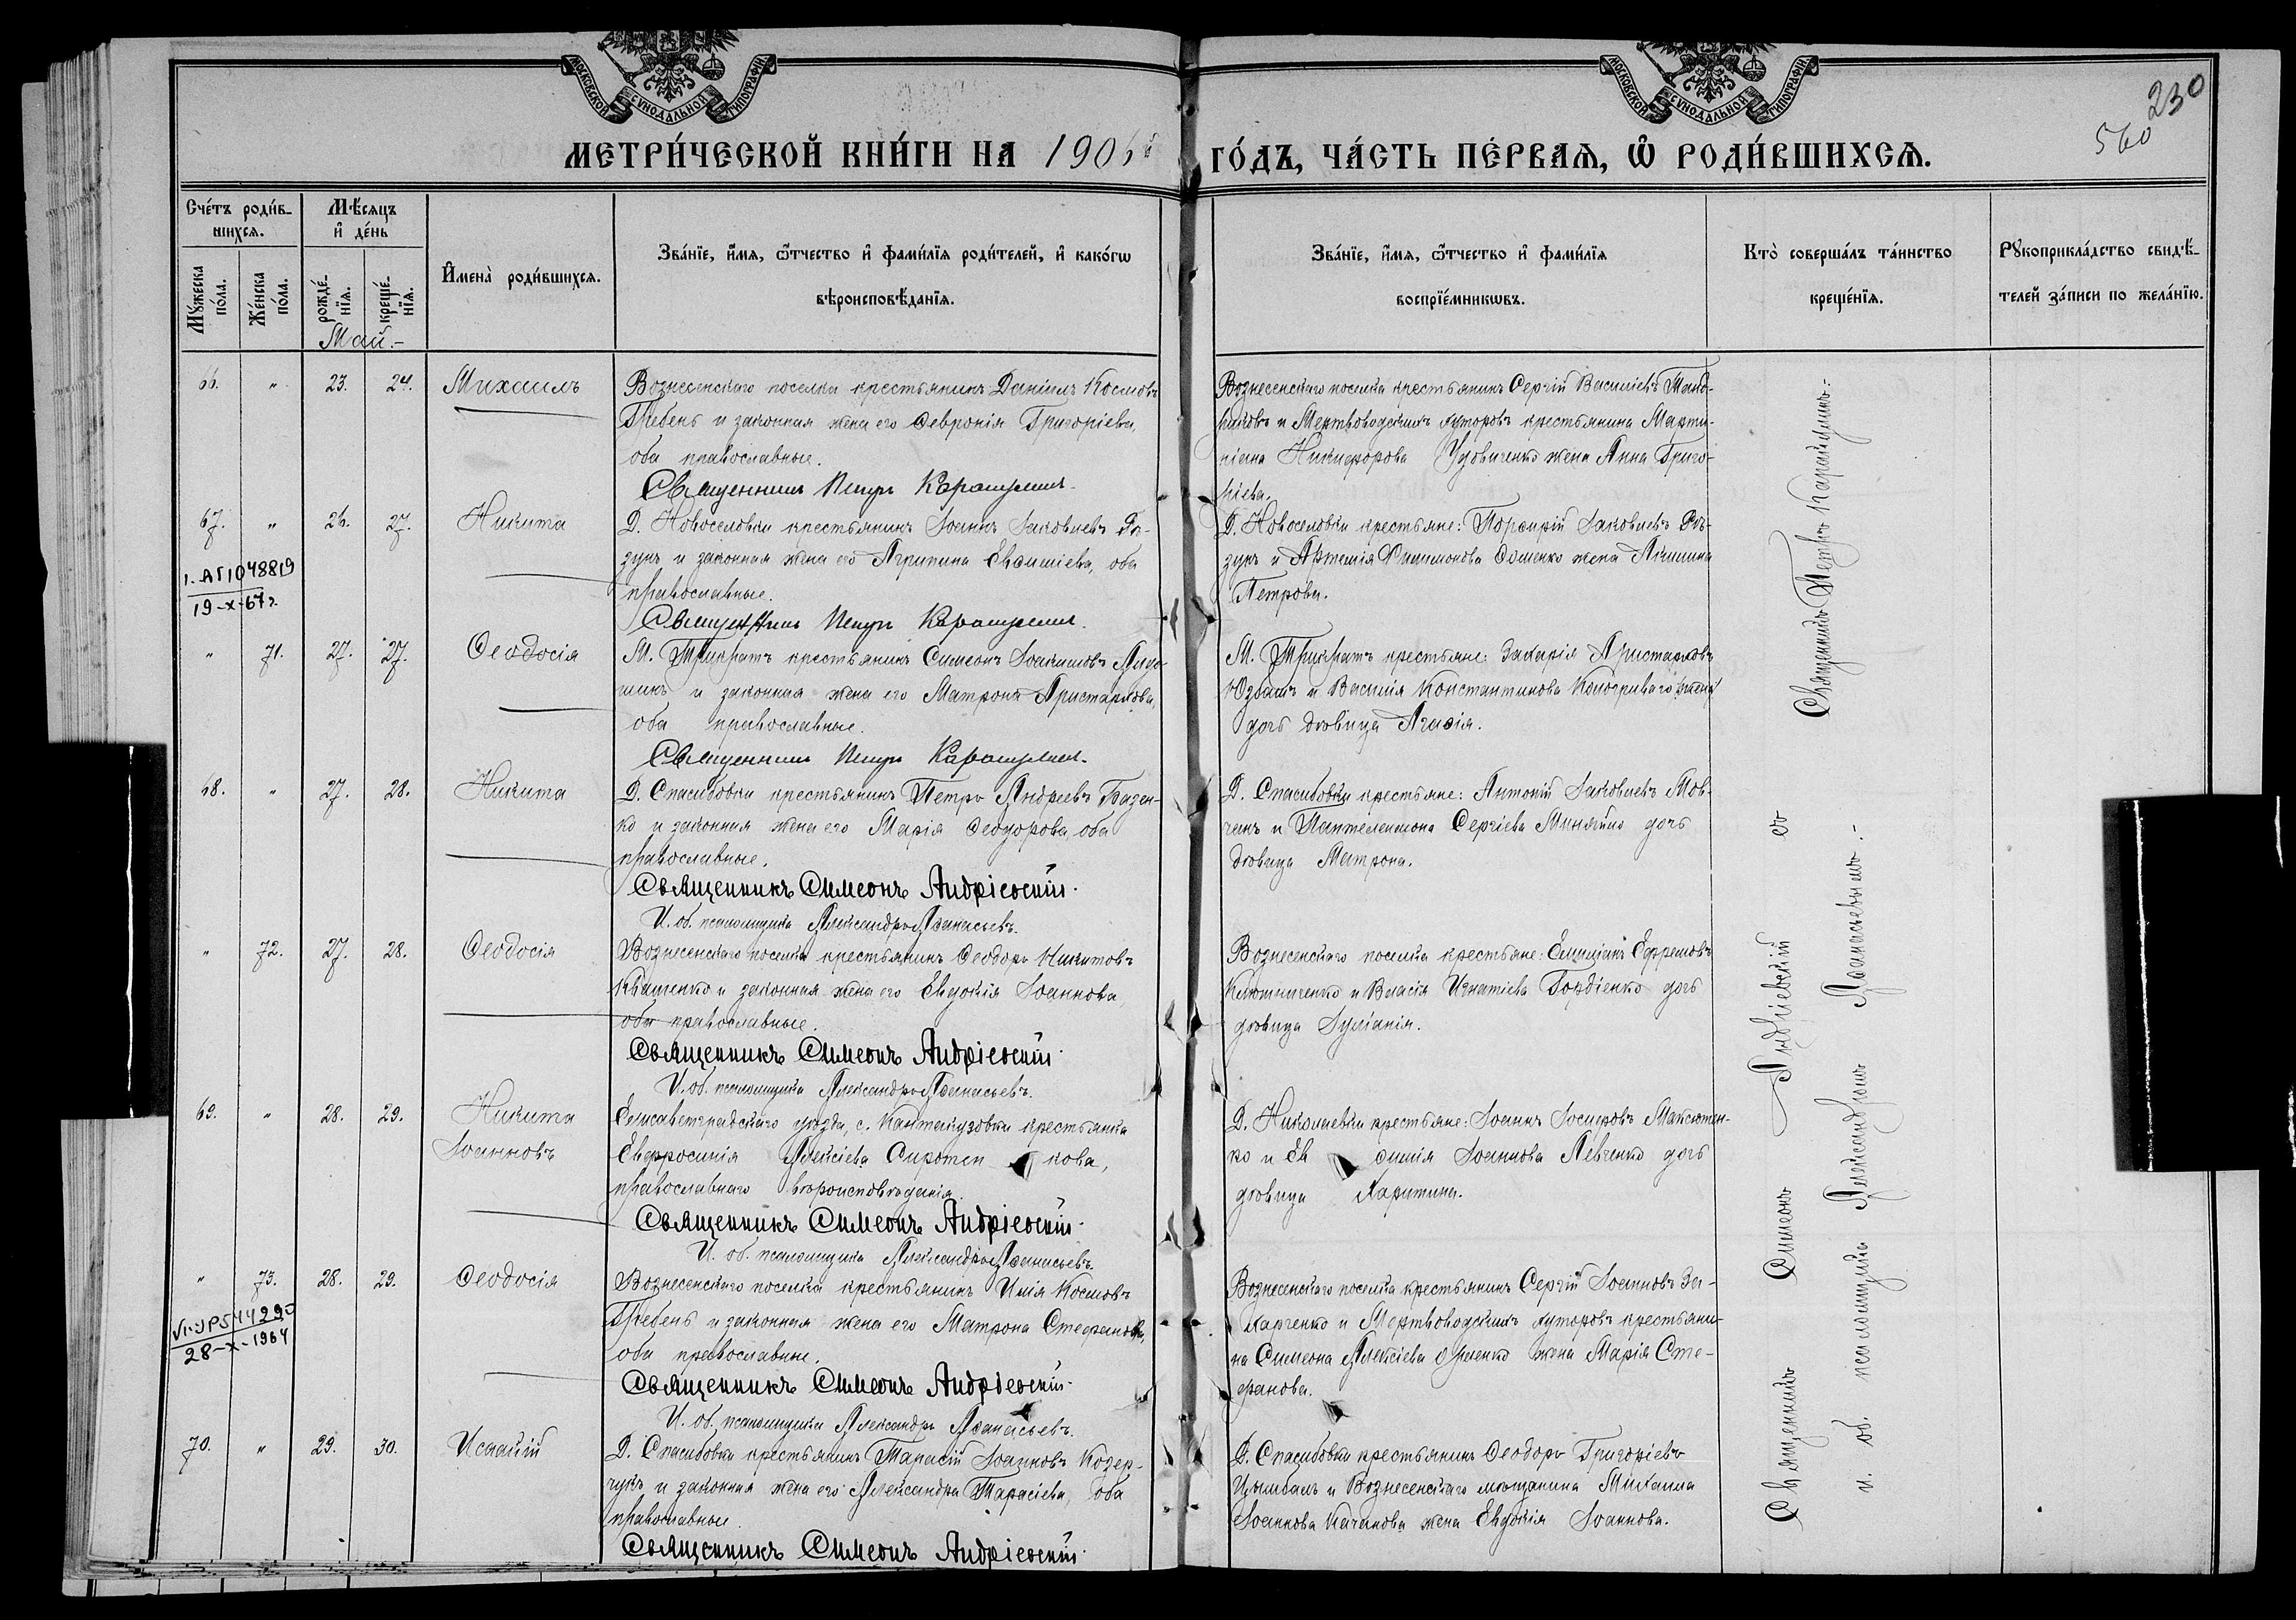 МОСКОВСКОЙ СѴНОДАЛЬНОЙ ТИПОГРАФІИ
МОСКОВСКОЙ СѴНОДАЛЬНОЙ ТИПОГРАФІИ
230
560
МЕТРИ́ЧЕСКОЙ КНИ́ГИ НА 1906й
ГО́ДЪ, ЧА́СТЬ ПЕ́РВАѦ, Ѡ҆ РОДИ́ВШИХСѦ.
Сче́тъ роди́в-
шихсѧ.
Мꙋ́жеска по́ла.
Же́нска по́ла.
Мѣ́сѧцъ и҆ де́нь
рожде́-
нїѧ.
креще́-
нїѧ.
И҆мена̀ роди́вшихсѧ.
Зва́нїе, и҆́мѧ, ѻ҆́тчество и҆ фами́лїѧ роди́телей, и҆ како́гѡ
вѣроисповѣ́данїѧ.
Зва́нїе, и҆́мѧ, ѻ҆́тчество и҆ фами́лїѧ
воспрїе́мникѡвъ.
Кто̀ соверша́лъ та́инство
креще́нїѧ.
Рꙋкоприкла́дство свидѣ́-
телей за́писи по жела́нїю.
Май.-
66. " 23. 24. Михаилъ
Вознесенскаго поселка крестьянинъ Даніилъ Космовъ
Гребень и законная жена его Февронія Григоріева,
оба православные.
Священникъ Петръ Карашулинъ.
Вознесенскаго поселка крестьянинъ Сергій Василіевъ
и Мертвоводскихъ хуторовъ крестьянина Марти-
ніана Никифорова Удовиченко жена Анна Григо-
ріева.
67. " 26. 27. Никита
Д. Новоселовки крестьянинъ Іоаннъ Іаковлевъ Ро-
зунъ и законная жена его Агрипина Евфиміева, оба
православные.
Священникъ Петръ Карашулинъ.
Д. Новоселовки крестьяне: Порфирій Іаковлевъ Ро-
зунъ и Артемія Филимонова Фоменко жена Акилина
Петрова.
1. АГ 1048819
19-X-67 г.
" 71. 27. 27. Феодосія
М. Трикратъ крестьянинъ Симеонъ Іоакимовъ
и законная жена его Матрона Аристархова,
оба православные.
Священникъ Петръ Карашулинъ.
М. Трикратъ крестьяне: Захарія Аристарховъ
и Василія Константинова
дочь дѣвица Агафія.
68. " 27. 28. Никита
Д. Спасибовки крестьянинъ Петръ Андреевъ Базен-
ко и законная жена его Марія Феодорова, оба
православные.
Священникъ Симеонъ Андріевскій.
И. об. псаломщика Александръ Афанасьевъ.
Д. Спасибовки крестьяне: Антоній Іаковлевъ Мов-
чанъ и Пантелеимона Сергіева Миняйло дочь
дѣвица Матрона.
" 72. 27. 28. Феодосія
Вознесенскаго поселка крестьянинъ Феодоръ Никитовъ
Квашенко и законная жена его Евдокія Іоаннова
оба православные.
Священникъ Симеонъ Андріевскій.
И. об. псаломщика Александръ Афанасьевъ.
Вознесенскаго поселка крестьяне: Ефремовъ
Ключниченко и Власія Игнатіева Гордіенко дочь
дѣвица Іуліанія.
69. " 28. 29. Никита
Іоанновъ
Елисаветградскаго уѣзда, с. Кантакузовки крестьянка
Евфросинія Алексіева Сиротен кова,
православнаго вѣроисповѣданія.
Священникъ Симеонъ Андріевскій.
И. об. псаломщика Александръ Афанасьевъ.
Д. Николаевки крестьяне: Іоаннъ Іосифовъ Максютен-
ко и Ев фимія Іоаннова Левченко дочь
дѣвица Харитина.
" 73. 28. 29. Феодосія
Вознесенскаго поселка крестьянинъ Илія Космовъ
Гребень и законная жена его Матрона Стефанова,
оба православные.
Священникъ Симеонъ Андріевскій.
И. об. псаломщика Александръ Афанасьевъ.
Вознесенскаго поселка крестьянинъ Сергій Іоанновъ За-
харченко и Мертвоводскихъ хуторовъ крестьяни-
на Симеона Алексіева жена Марія Сте-
фанова.
28-X-1964
70. " 29. 30. Исаакій
Д. Спасибовки крестьянинъ Тарасій Іоанновъ Козер-
чукъ и законная жена его Александра Тарасіева, оба
православные.
Священникъ Симеонъ Андріевскій.
Д. Спасибовки крестьянинъ Феодоръ Григоріевъ
Цымбалъ и Вознесенскаго мѣщанина Михаила
Іоаннова Качанова жена Евдокія Іоаннова.
Священникъ Петръ Карашулинъ.
Священникъ Симеонъ Андріевскій съ
и. об. псаломщика Александромъ Афанасьевымъ.-